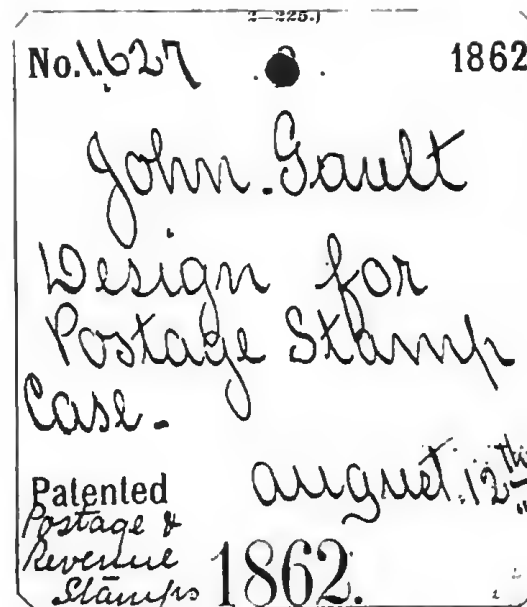 2—225.)
No. 1.627 1862
John Gault
Design for
Postage Stamp
Case.
Patented August 12th
Postage &
Revenue
Stamps 1862.